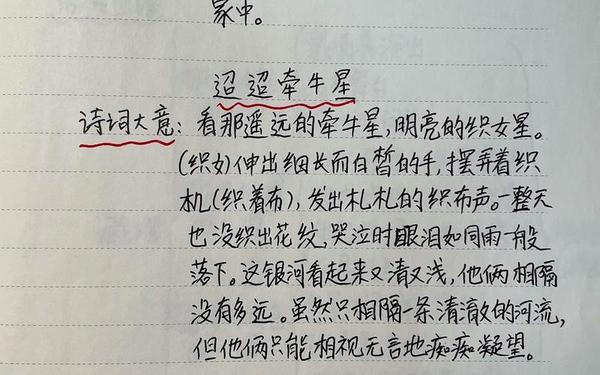 家中。
迢迢牵牛星
诗词大意：看那遥远的牵牛星，明亮的织女星。
(织女)伸出细长而白皙的手，摆弄着织
机(织着布)，发出札札的织布声。一整天
也没织出花纹，哭泣时眼泪如同雨一般
落下。这银河看起来又清又浅，他俩相隔
没有多远。虽然只相隔一条清澈的河流，
但他俩只能相视无言地痴痴凝望。